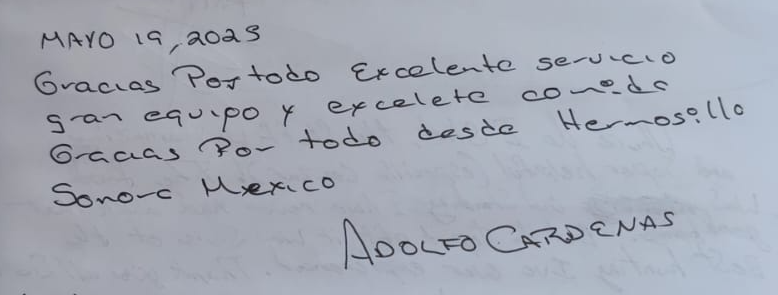 MAYO 19, 2023
Gracias Por todo Excelente servicio
gran equipo y excelete comida
Gracias Por todo desde Hermosillo
Sonora Mexico
ADOLFO CARDENAS